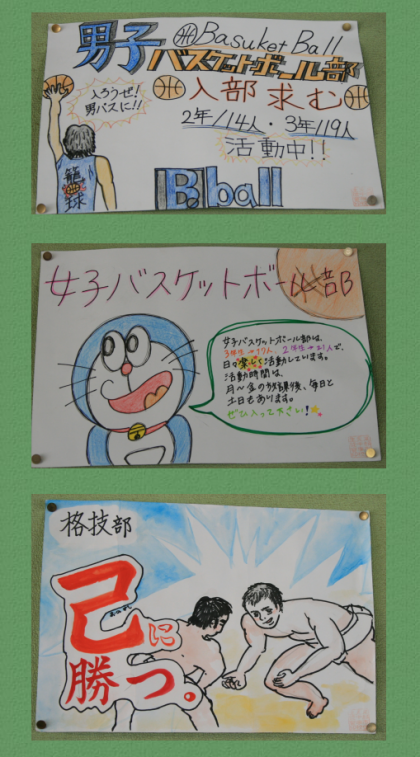 男子
Basuket Ball
バスケットボール部
入部求む
入ろうぜ!
男バスに!!
2年/14人・3年/19人
活動中!!
籠球
B.ball
女子バスケットボール部
女子バスケットボール部は、
3年生→17人、2年生→21人で、
日々楽しく活動しています。
活動時間は、
月〜金の放課後、毎日と
土日もあります。
ぜひ入って下さい!
格技部
己に
おのれ
勝つ。